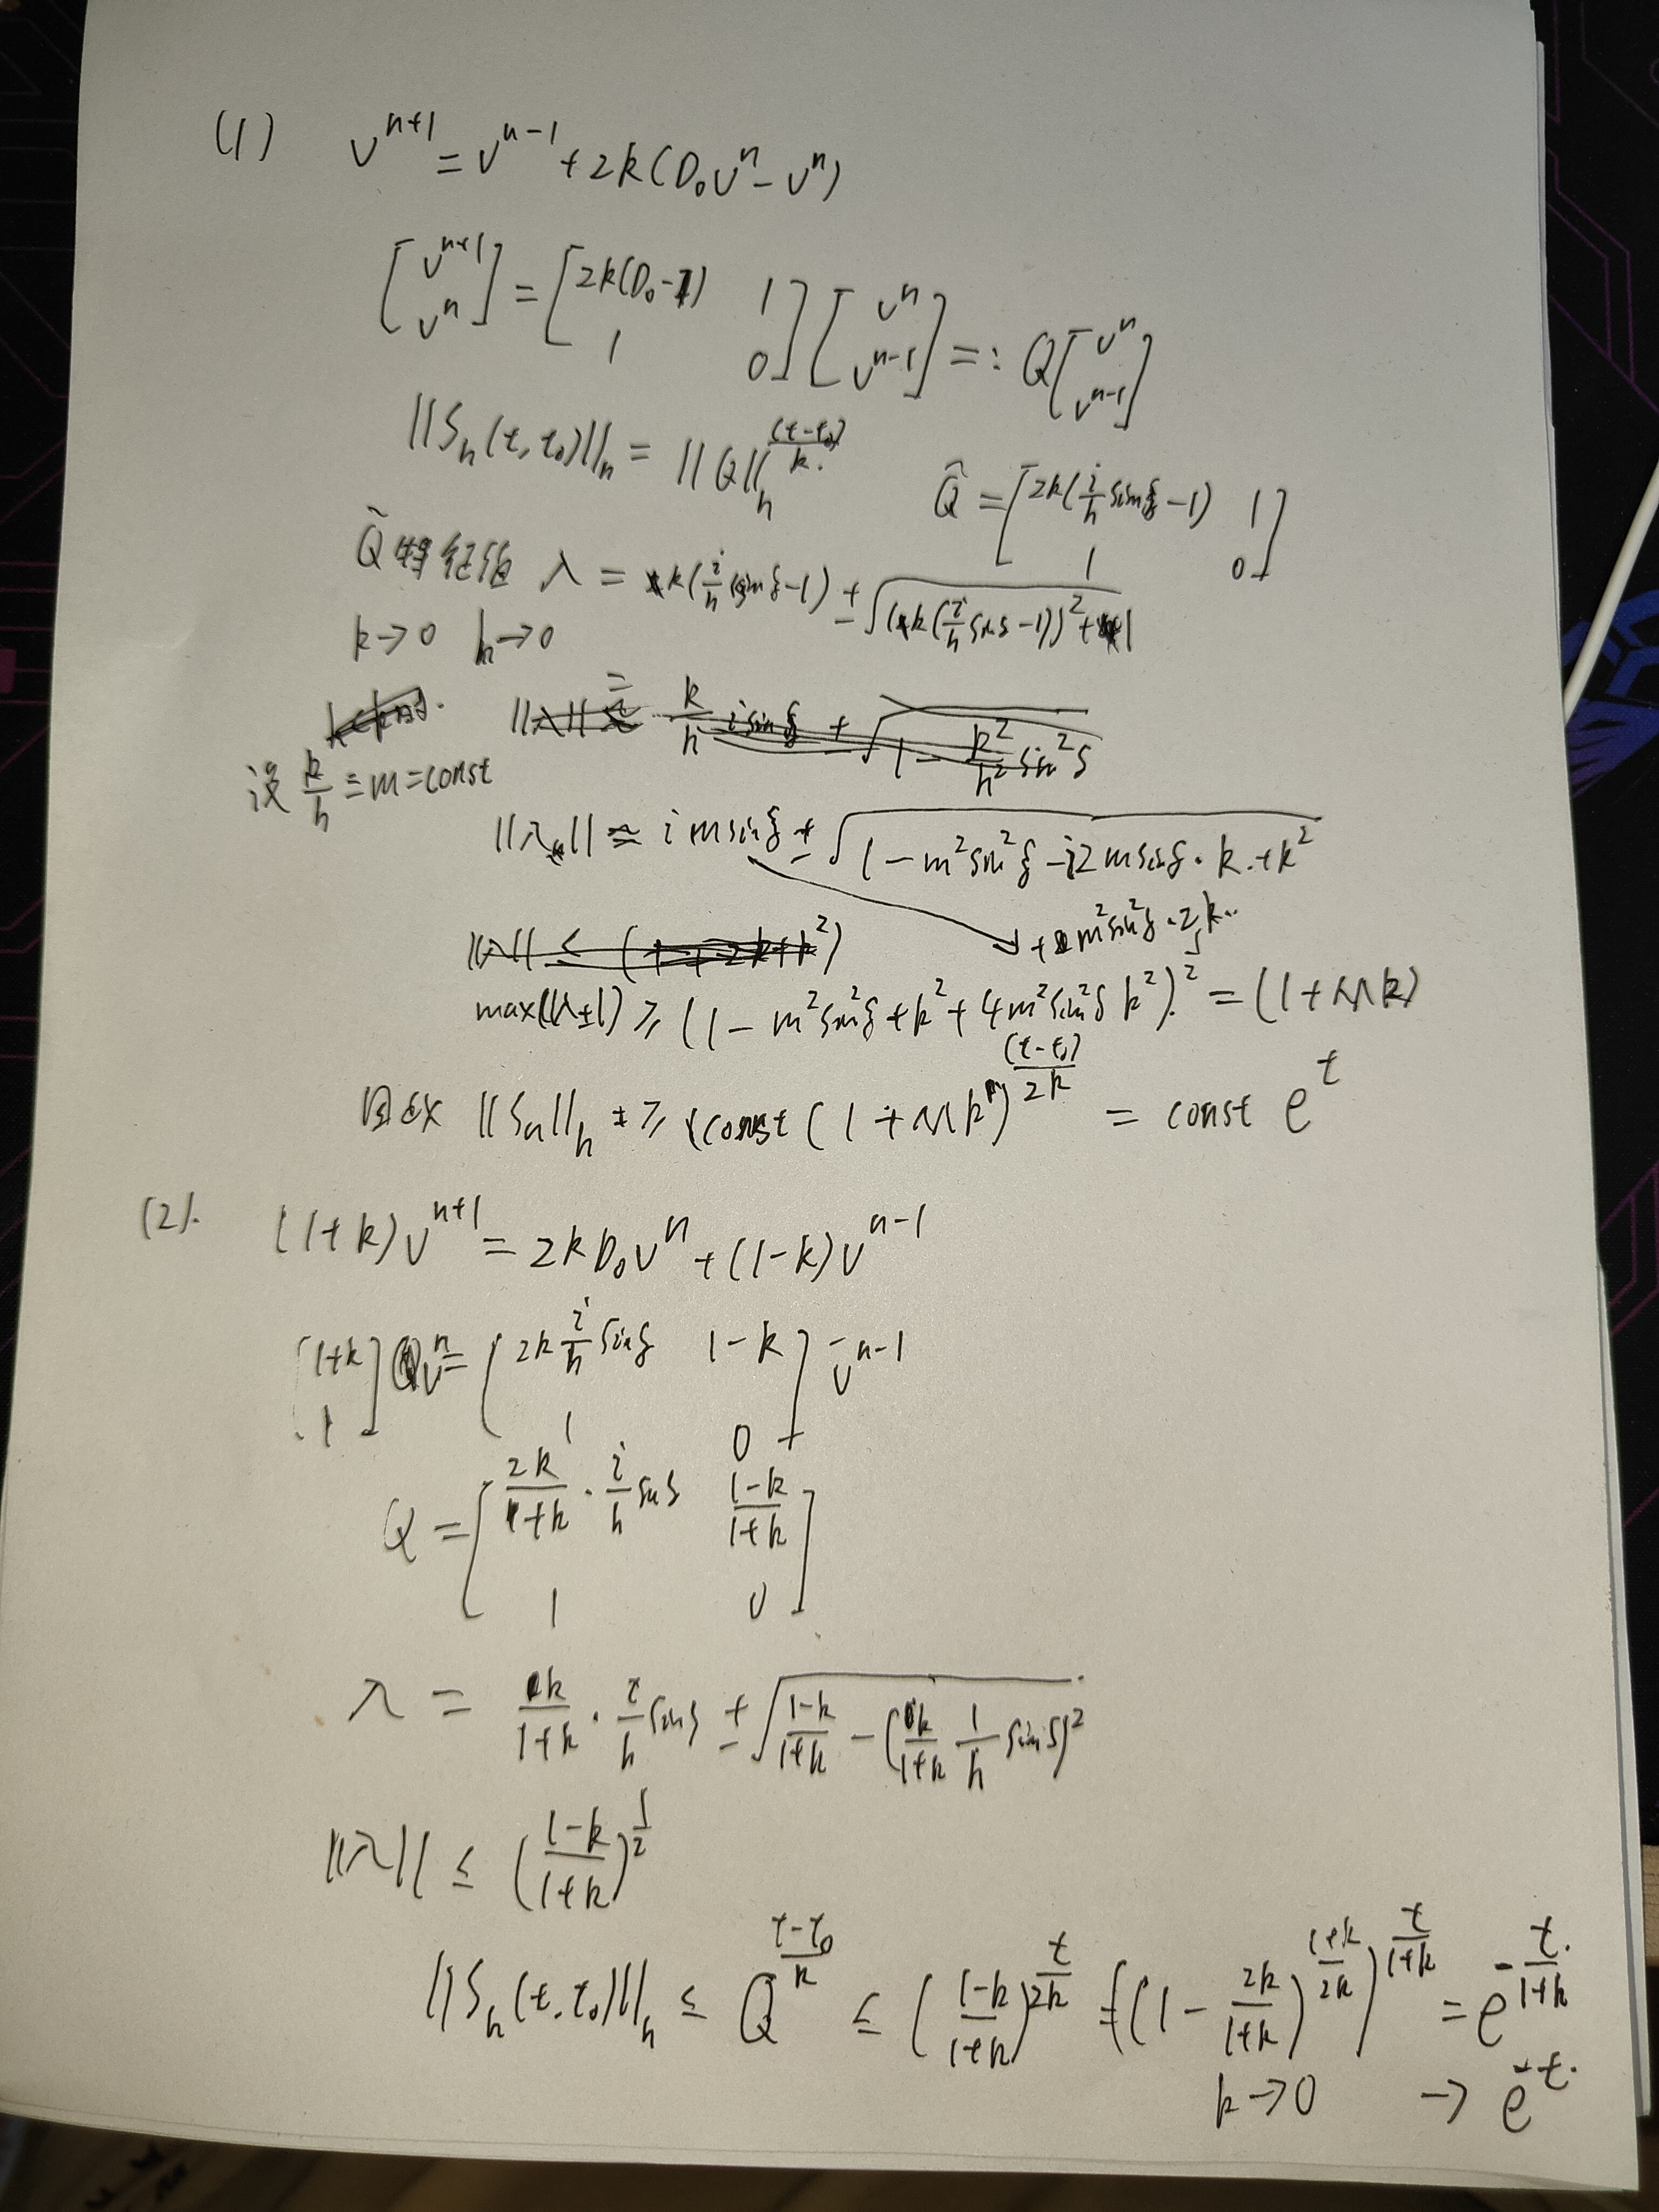 (1) v^{n+1} = v^{n-1} + 2k(D₀v^n - v^n)
[v^{n+1} ; v^n] = [2k(D₀-1) 1 ; 1 0] [v^n ; v^{n-1}] =: Q[v^n ; v^{n-1}]
||S_h(t,t₀)||_h = ||Q||_h^{(t-t₀)/k}. Q̂ = [2k(i/h sinξ - 1) 1 ; 1 0]
Q̂ 特征值 λ = k(i/h sinξ - 1) ± √((k(i/h sinξ - 1))² + 1)
k→0 h→0
||λ|| = k/h i sinξ + √(1 - k²/h² sin²ξ)
设 k/h ≡ m = const
||λ|| ≈ i m sinξ ± √(1 - m² sin²ξ - i2m sinξ · k + k²)
+ m² sin²ξ · 2k..
||λ|| ≤ (1+2k+k²)
max(|λ±|) ≥ (1 - m² sin²ξ + k² + 4m² sin²ξ k²)^{1/2} = (1+Mk)
因此 ||S_h||_h ≥ const (1+Mk)^{(t-t₀)/2k} = const e^t
(2). (1+k)v^{n+1} = 2kD₀v^n + (1-k)v^{n-1}
[1+k ; 1] v^n = [2k i/h sinξ 1-k ; 1 0] v^{n-1}
Q = [2k/(1+k) · i/h sinξ (1-k)/(1+k) ; 1 0]
λ = k/(1+k) · i/h sinξ ± √((1-k)/(1+k) - (k/(1+k) 1/h sinξ)²)
||λ|| ≤ ((1-k)/(1+k))^{1/2}
||S_h(t,t₀)||_h ≤ Q^{(t-t₀)/k} ≤ ((1-k)/(1+k))^{t/2k} = ((1 - 2k/(1+k))^{(1+k)/2k})^{t/(1+k)} = e^{-t/(1+k)}
k→0 → e^{-t}.